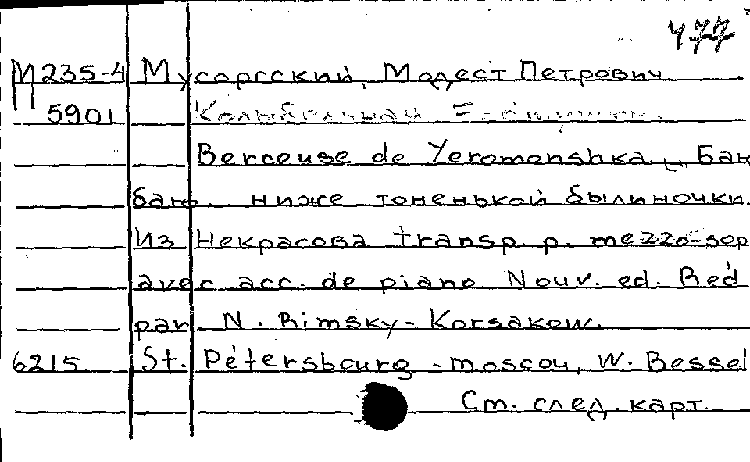 477
М235-4 Мусоргский, Модест Петрович
5901 Колыбельная
Berceuse de Yeromonshka „ Бан
бань ниже тоненькой былиночки.
Из Некрасова transp. p. mezzo-sop
avec acc. de piano Nouv. ed. Réd
par N. Rimsky-Korsakow.
6215 St. Pétersbourg-moscou, W. Bessel
См. след. карт.